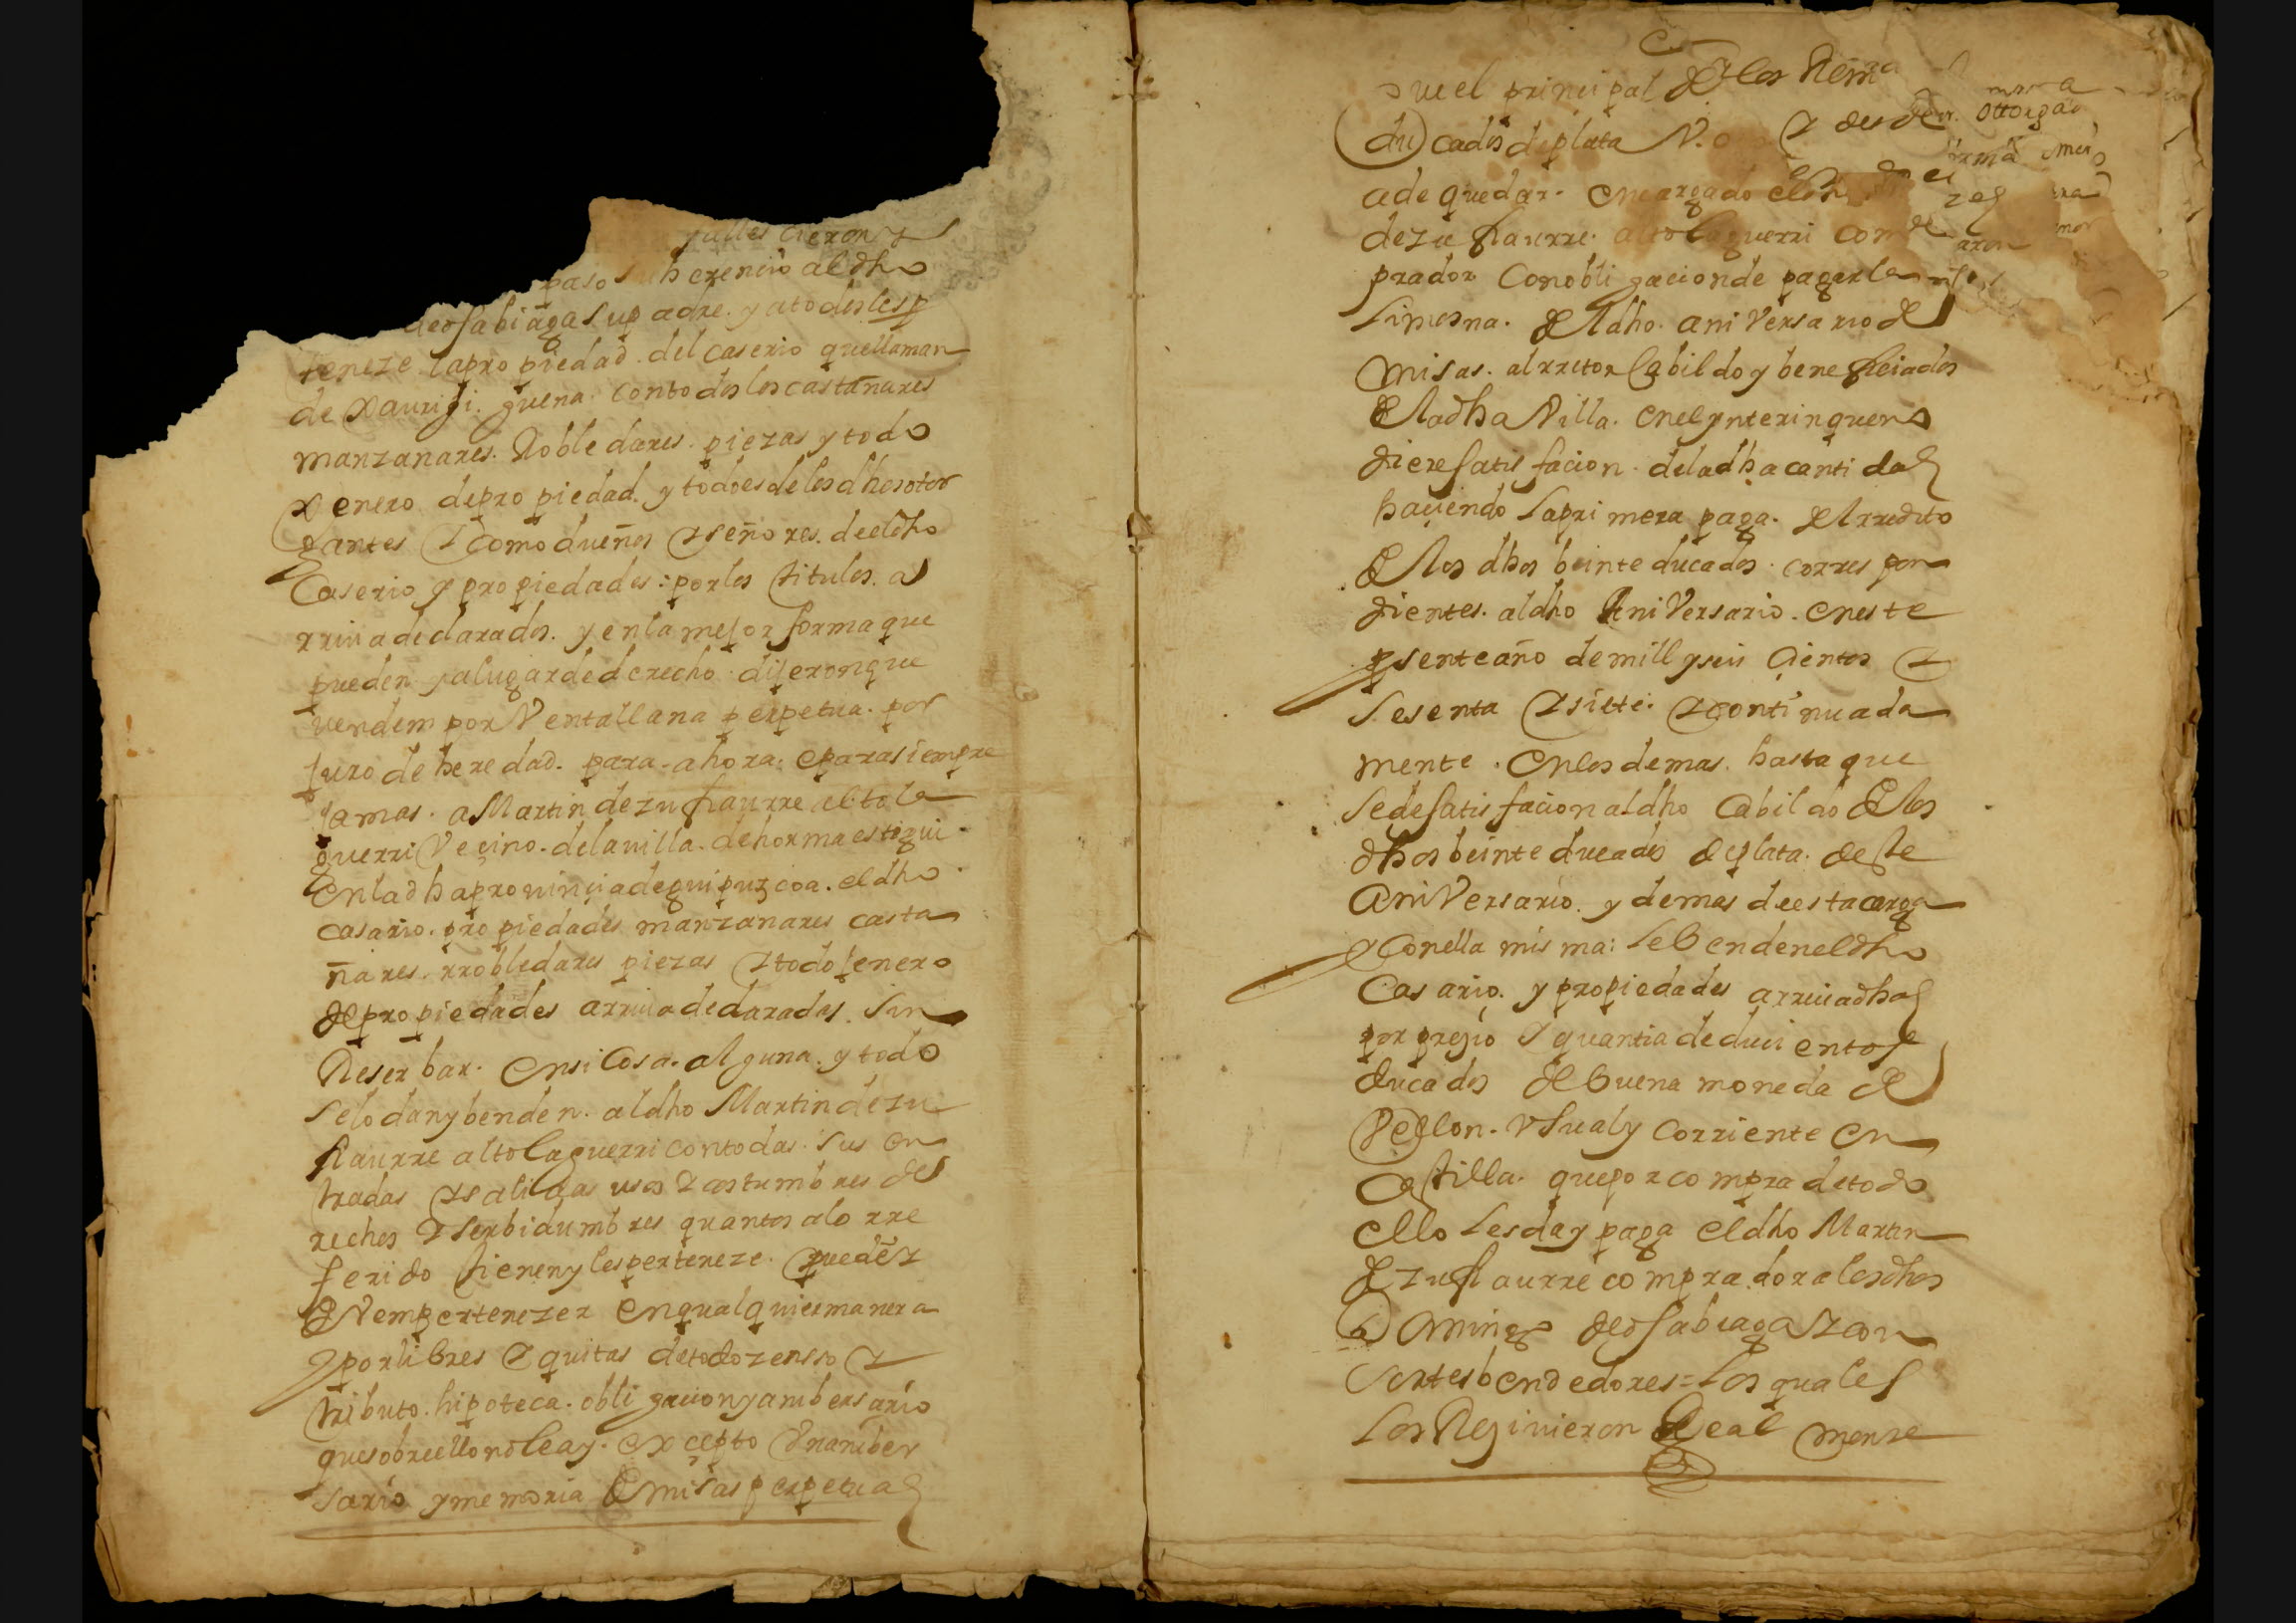 yalles cieron y
paso su herencia al dho
de osabiaga su padre. y a todos les p
teneze la propiedad. del caserio que llaman
de Xaurigi. guena. con todos los castañares
manzanares. Robledares. piezas y todo
xenero. de propiedad. y todo es de los dhos otor
gantes Y como dueños y señores. de el dho
Caserio y propiedades: por los titulos. a
rriua declarados. y en la mejor forma que
pueden y a lugar de derecho. dijeron que
venden por Venta llana perpetua. por
juro de heredad. para ahora. e para siempre
jamas. a Martin de zufiaurre altola
guerri Veçino. de la uilla. de hormaestigui
en la dha prouinçia de guipuzcoa. el dho
casario. propiedades manzanares casta
ñares. rrobledares piezas Y todo jenero
de propiedades arriua declaradas. Sin
Reserbar. en si Cosa. alguna. y todo
se lo dan y benden. al dho Martin de zu
fiaurre altolaguerri con todas. sus en
tradas y salidas usos y costumbres de
rechos y serbidumbres quantos a lo rre
ferido tienen y les perteneze. pueden
deVem pertenezer en qualquier manera
y por libres e quitas de todo zensso y
tributo. hipoteca. obligacion y anibersario
que sobre ello no le ay. excepto Vn aniber
sario y memoria de misas perpetuas
que el principal de los Rem
ducados de plata V.
otorga
a de quedar. encargado el dh
de zufiaurre. altolaguerri com
prador Con obligacion de pagar la
limosna. de el dho. aniVersario de
misas. al rretor Cabildo y beneficiados
de la dha Villa. en el ynterin que no
diere satisfacion. de la dha cantidad
haçiendo la primera paga. de el rredito
de los dhos beinte ducados. corres pon
dientes. al dho AniVersario. en este
presente año de mill y seis çientos y
sesenta y siete. y continuada
mente. en los demas. hasta que
se de satisfacion al dho Cabildo de los
dhos beinte ducados de plata. de este
AniVersario. y demas de esta carga
y Con ella misma: le benden el dho
Casario. y propiedades arriua dhas
por preçio e quantia de duçientos
ducados de buena moneda de
Vellon. Vsual y corriente en
Castilla. que por compra de todo
ello les da y paga el dho Martin
de zufiaurre comprador a los dhos
Domingo de osabiaga y con
sortes bendedores = los quales
los Reçiuieron Real mente